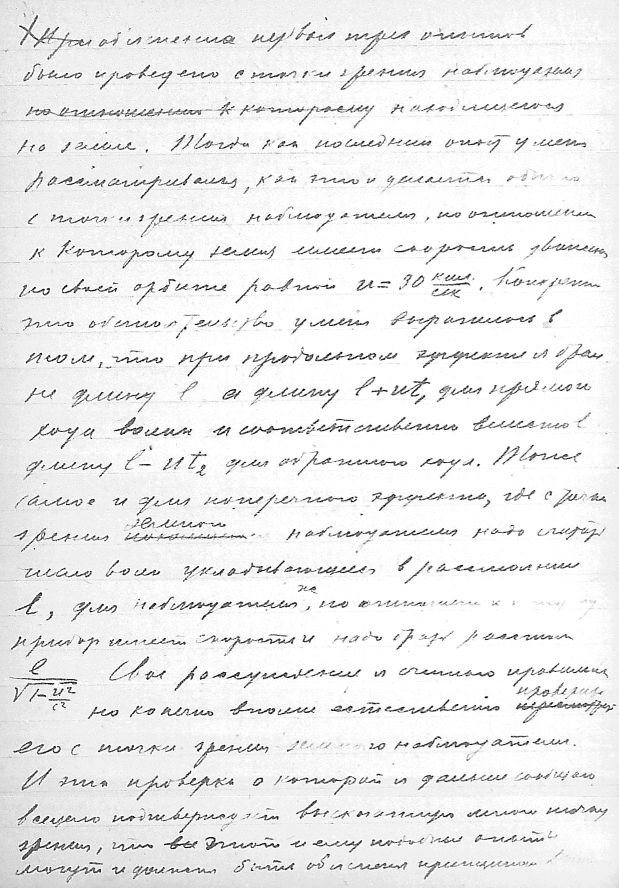 При обяснения первых трех опытов
было проведено с точки зрения наблюдателя
по отношению к которому находящегося
на земле. Тогда как последний опыт у меня
рассматривался, как это и делается обычно
с точки зрения наблюдателя, по отношению
к которому земля имеет скорость движения
по своей орбите равной u = 30 кил./сек. Конкретно
это обстоятельство у меня выразилось в
том, что при продольном эффекте я брал
не длину l а длину l + ut₁ для прямого
хода волны и соответственно вместо l
длину l - ut₂ для обратного хода. Тоже
самое и для поперечного эффекта, где с точки
зрения земного наблюдателя надо считать
число волн укладывающееся в расстоянии
l, для наблюдателя же, по отношению к
прибор имеет скорость u надо брать расстоян
l/√1-u²/c² Свое рассуждение я считаю правильным
но конечно вполне естественно проверить
его с точки зрения земного наблюдателя.
И эта проверка о которой я дальше сообщаю
всецело подтверждает высказанную мною точку
зрения, что все этот и ему подобные опыты
могут и должны быть обяснены принципом